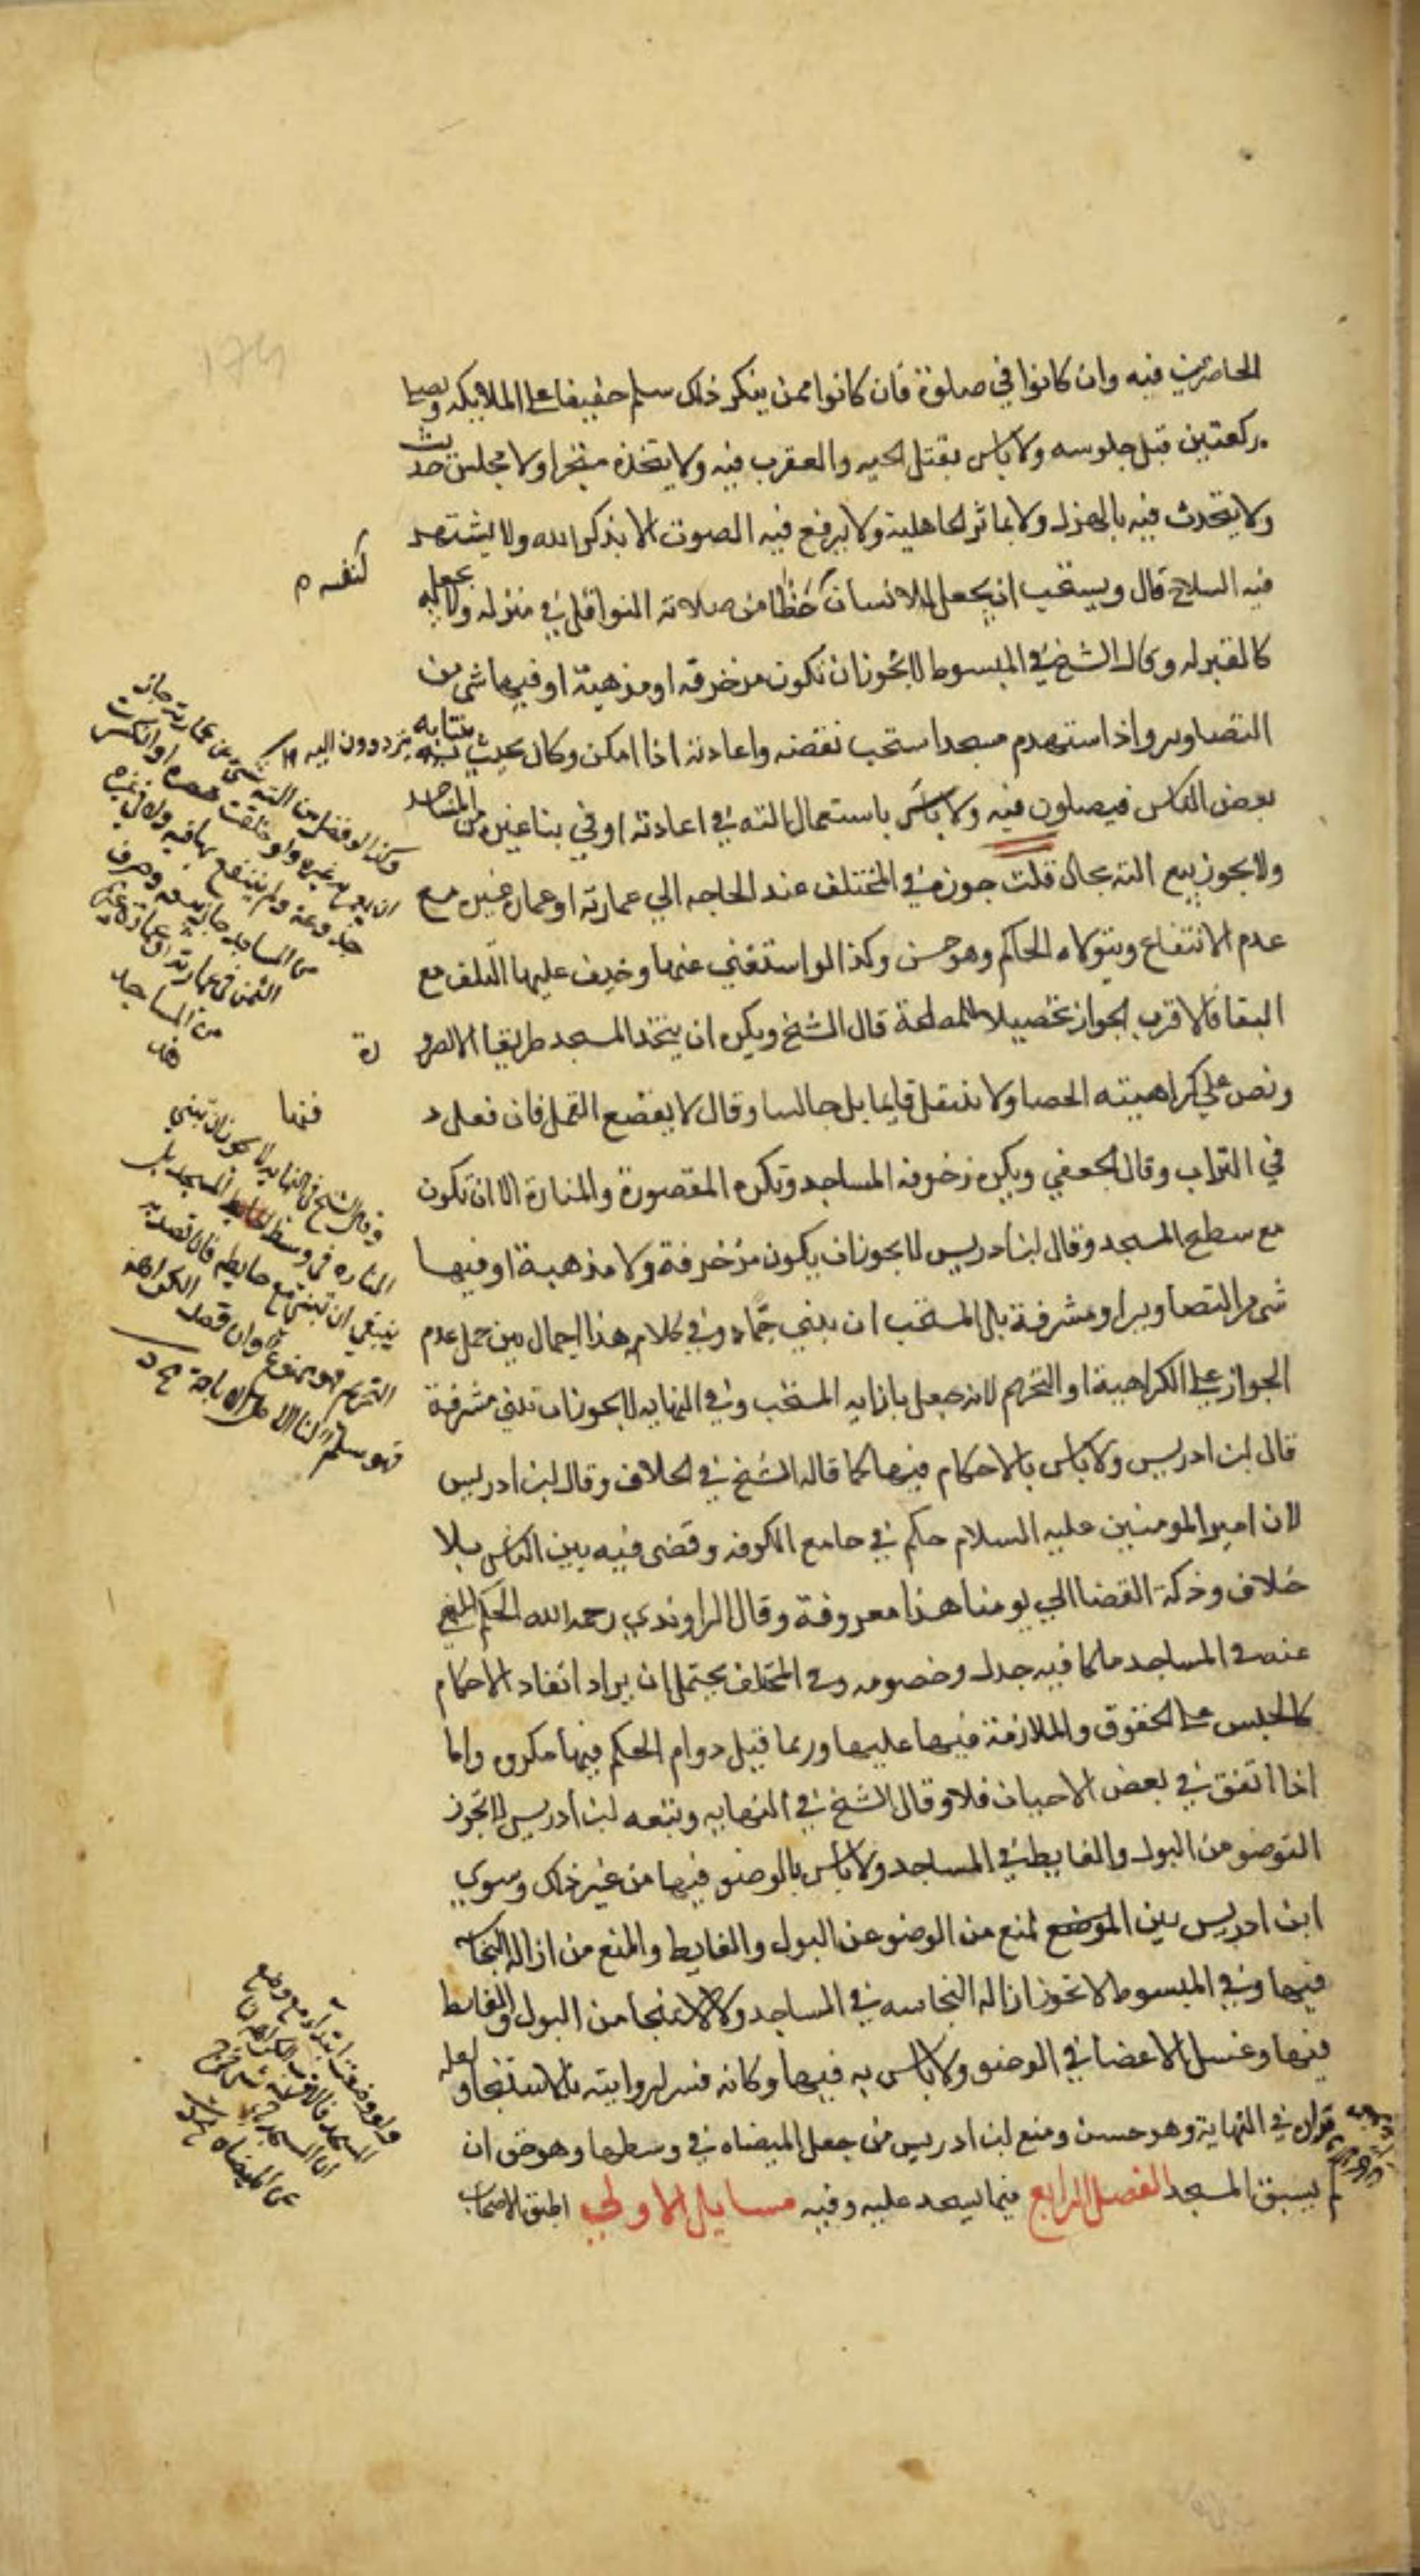 الحاضرين فيه وان كانوا في صلوة فان كانوا ممن ينكر ذلك سلم خفيفا على الملايكه ويصلي
ركعتين قبل جلوسه ولا باس بقتل الحيه والعقرب فيه ولا يتخذه متجرا ولا مجلس حديث
ولا يتحدث فيه بالهزل ولا بماثر الجاهلية ولا يرفع فيه الصوت الا بذكر الله ولا يشتهر
فيه السلاح قال ويستحب ان يجعل الانسان لنفسه حظا من صلاته النوافل في منزله ولا يجعله
كالقبر له وقال الشيخ في المبسوط لا يجوز ان تكون مزخرفه او مذهبة او فيها شي من
التصاوير واذا استهدم مسجد استحب نقضه واعادته اذا امكن وكان بحيث ينتابه يترددون اليه
بعض الناس فيصلون فيه ولا باس باستعمال الته في اعادته او في بنا غيره من المساجد
ولا يجوز بيع الته بحال قلت جوزه في المختلف عند الحاجه الي عمارته او عمارة غيره مع
عدم الانتفاع ويتولاه الحاكم وهو حسن وكذا لو استغني عنها وخيف عليها التلف مع
البقا فالاقرب الجواز تحصيلا للمصلحة قال الشيخ ويكره ان يتخذ المسجد طريقا الا لضرورة
ونص علي كراهيته الحصا ولا ينتقل قايما بل جالسا وقال لا يقصع القمل فان فعل د فنها
في التراب وقال الجعفي ويكره زخرفه المساجد وتكره المقصورة والمنارة الا ان تكون
مع سطح المسجد وقال ابن ادريس لا يجوز ان يكون مزخرفة ولا مذهبة او فيها
شي من التصاوير او مشرفة بل المستحب ان يبني جما وفي كلام هذا اجمال بين حمل عدم
الجواز علي الكراهية او التحريم لانه جعل بازايه المستحب وفي النهايه لا يجوز ان تبني مشرفة
قال ابن ادريس ولا باس بالاحكام فيها كما قاله الشيخ في الخلاف وقال ابن ادريس
لان امير المومنين عليه السلام حكم في جامع الكوفه وقضى فيه بين الناس بلا
خلاف ودكة القضا الي يومنا هذا معروفة وقال الراوندي رحمه الله الحكم المنهي
عنه في المساجد ما كا فيه جدل وخصومه وفي المختلف يحتمل ان يراد انفاذ الاحكام
كالحبس على الحقوق والملازمة فيها عليها وربما قيل دوام الحكم فيها مكروه واما
اذا اتفق في بعض الاحيان فلا وقال الشيخ في النهايه وتبعه ابن ادريس لا يجوز
التوضو من البول والغايط في المساجد ولا باس بالوضو فيها من غير ذلك وسوي
ابن ادريس بين الموضع لمنع من الوضو عن البول والغايط والمنع من ازاله النجاسه
فيها وفي المبسوط لا تجوز ازاله النجاسه في المساجد ولا الاستنجا من البول والغايط
فيها وغسل الاعضا في الوضو ولا باس به فيها وكانه فسر الرواية بالاستنجا ولعله
قوله في النهاية وهو حسن ومنع ابن ادريس من جعل الميضاه في وسطها وهو حق ان
لم يسبق المسجد الفصل الرابع فيما يسجد عليه وفيه مسايل الاولي اطبق الاصحاب
وكذا لو فضل من الته شي عن عمارته جاز
ان يعمر به غيره ولو خلقت حصره او انكسرت
جذوعه ولم ينتفع بها فيه ولا في غيره
من المساجد جاز بيعه وصرف
الثمن في عمارته او عمارة غيره
من المساجد
وقال الشيخ في النهايه لا يجوز ان تبني
المناره في وسط المسجد بل
ينبغي ان تبني مع حايطه فان قصد به
التحريم فهو ممنوع وان قصد الكراهة
فهو مسلم لنا الاصل الاباحة
ولو وضعت ابتداء مع وضع
المسجد فالاقرب الكراهة